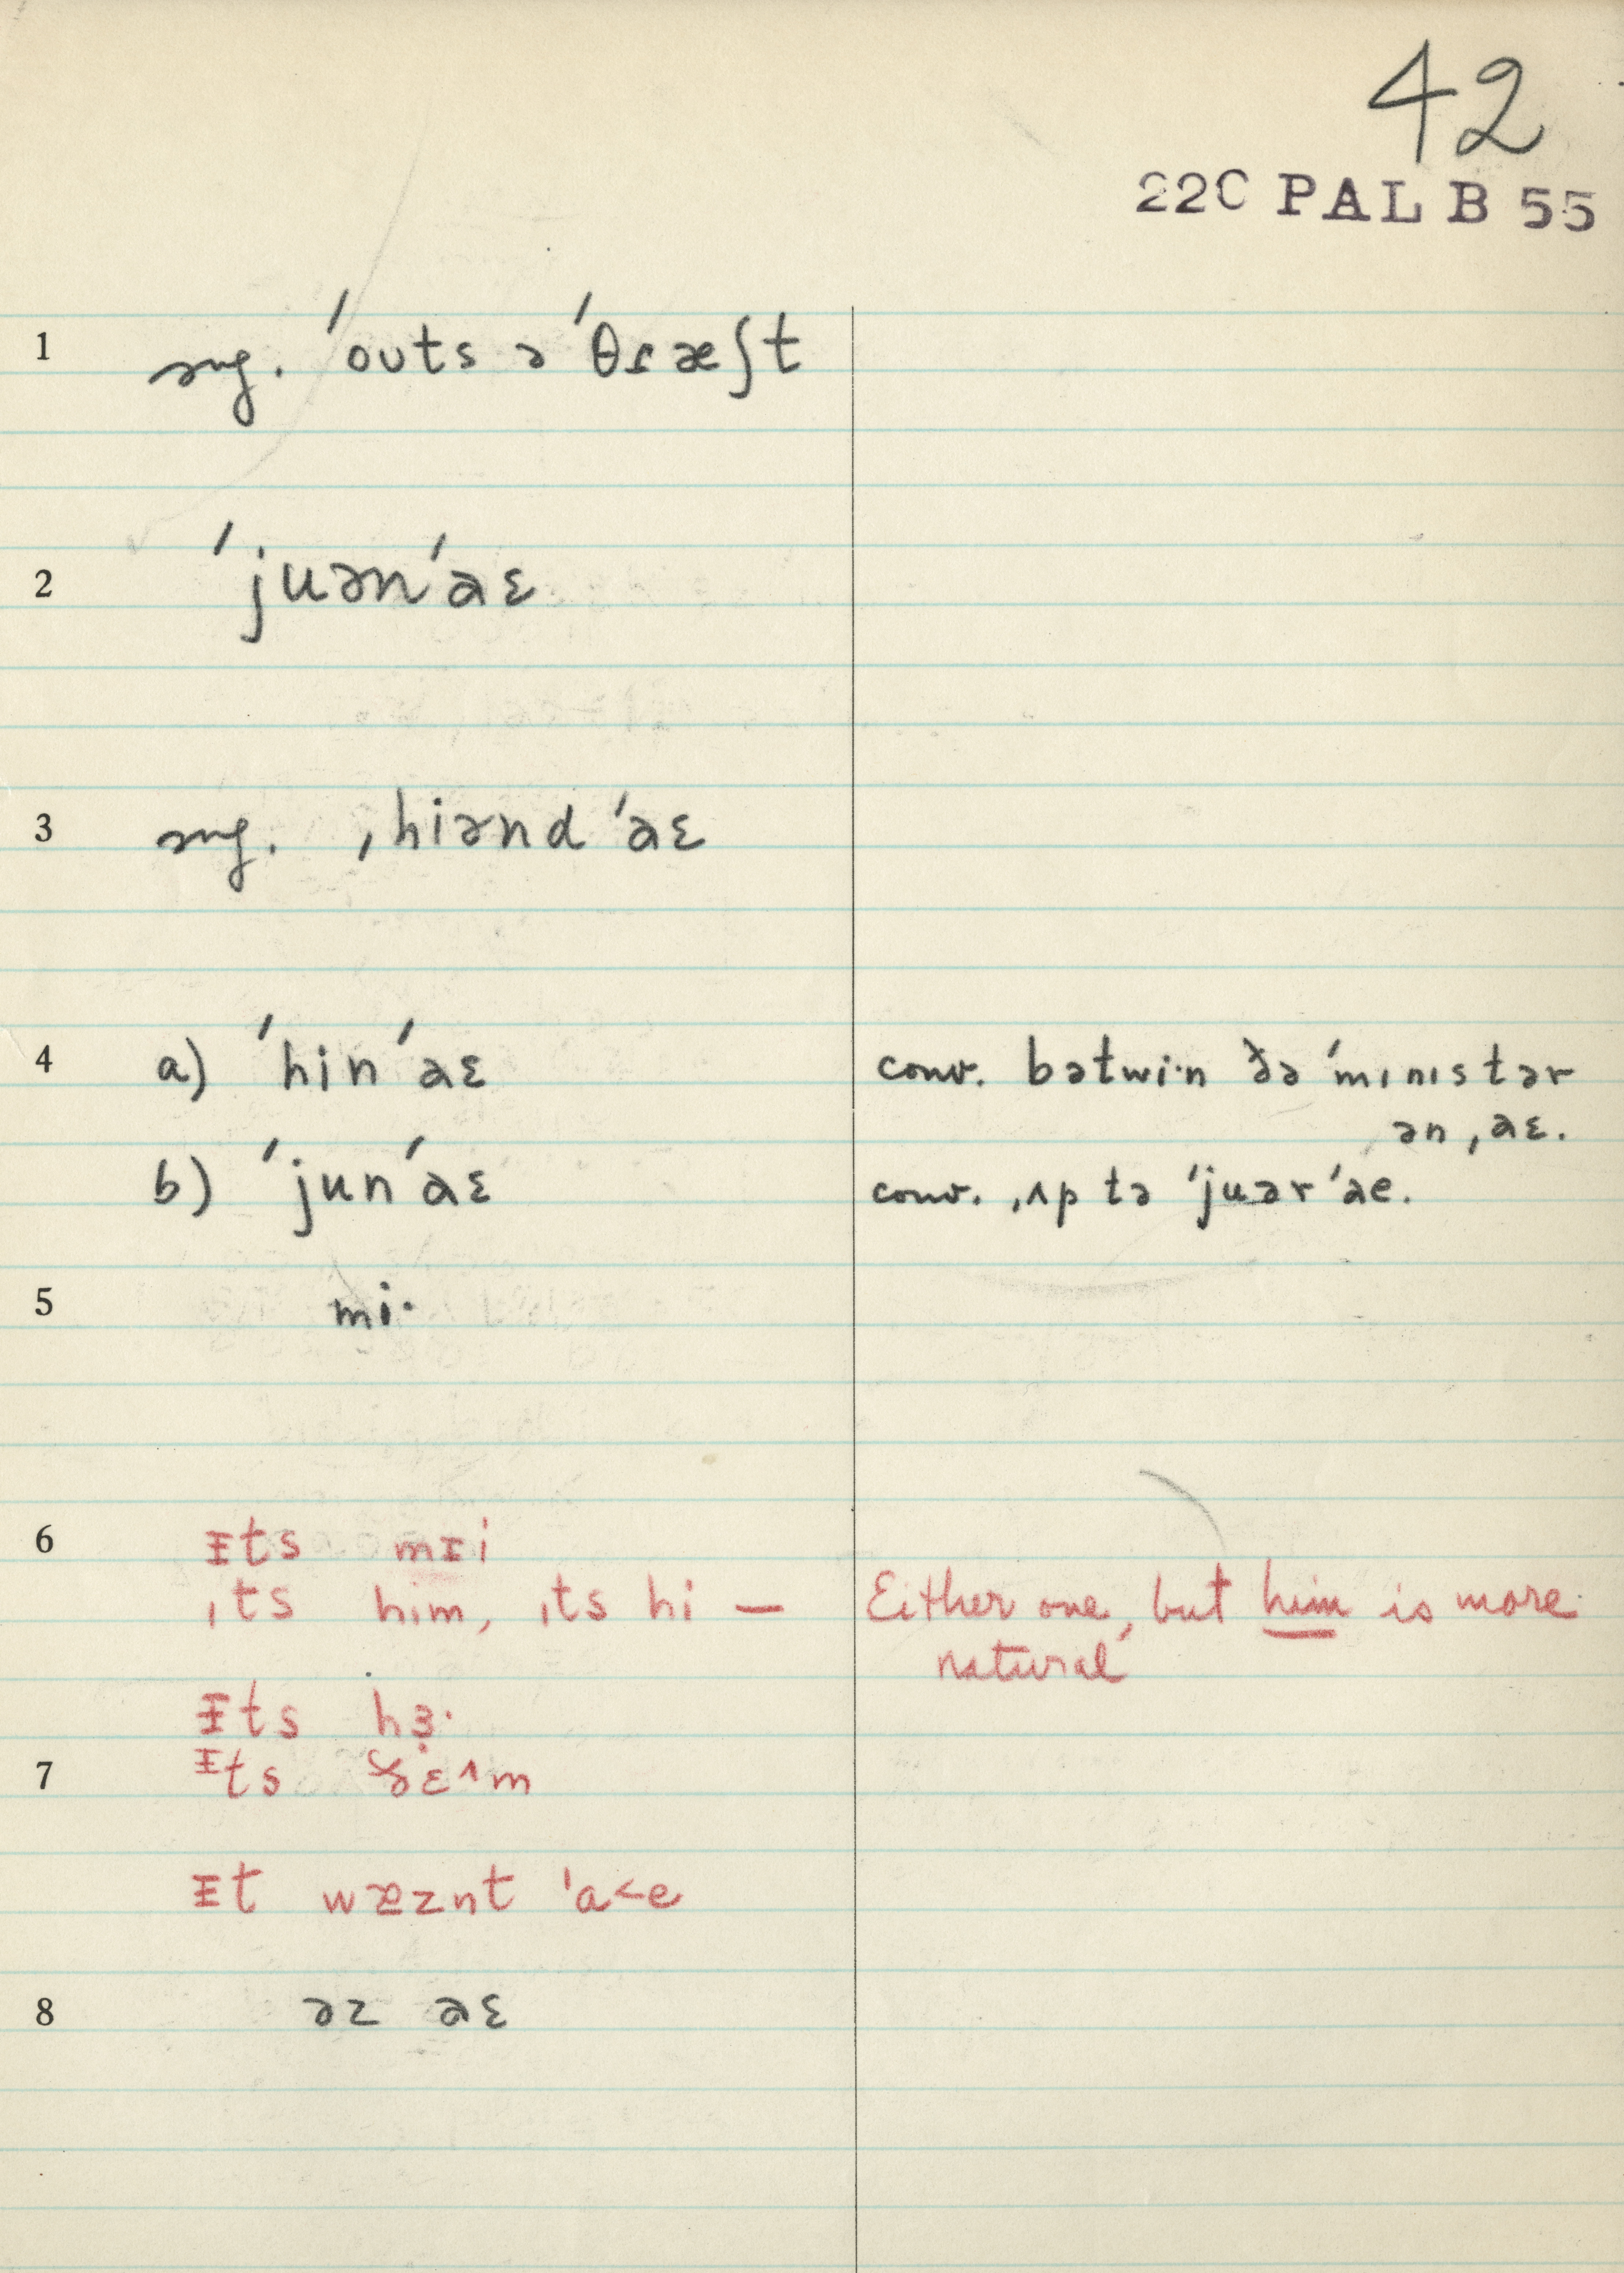 42
22C PAL B 55
1 sug. ˈouts ə ˈθɾæʃt
2 ˈjuənˈaɛ
3 sug. ˌhiənd ˈaɛ
4 a) ˈhinˈaɛ conv. bətwi·n ðə ˈmɪnɪstər
ən ˌaɛ.
b) ˈjunˈaɛ conv. ˌʌp tə ˈjuər ˈae.
5 mi·
6 ᵻts mɪi
ɪts him, ɪts hi — Either one, but him is more
natural
ᵻts hɜ̣·
7 ᵻts ðɛ^m
ᵻt wæznt ˈa<e
8 əz aɛ